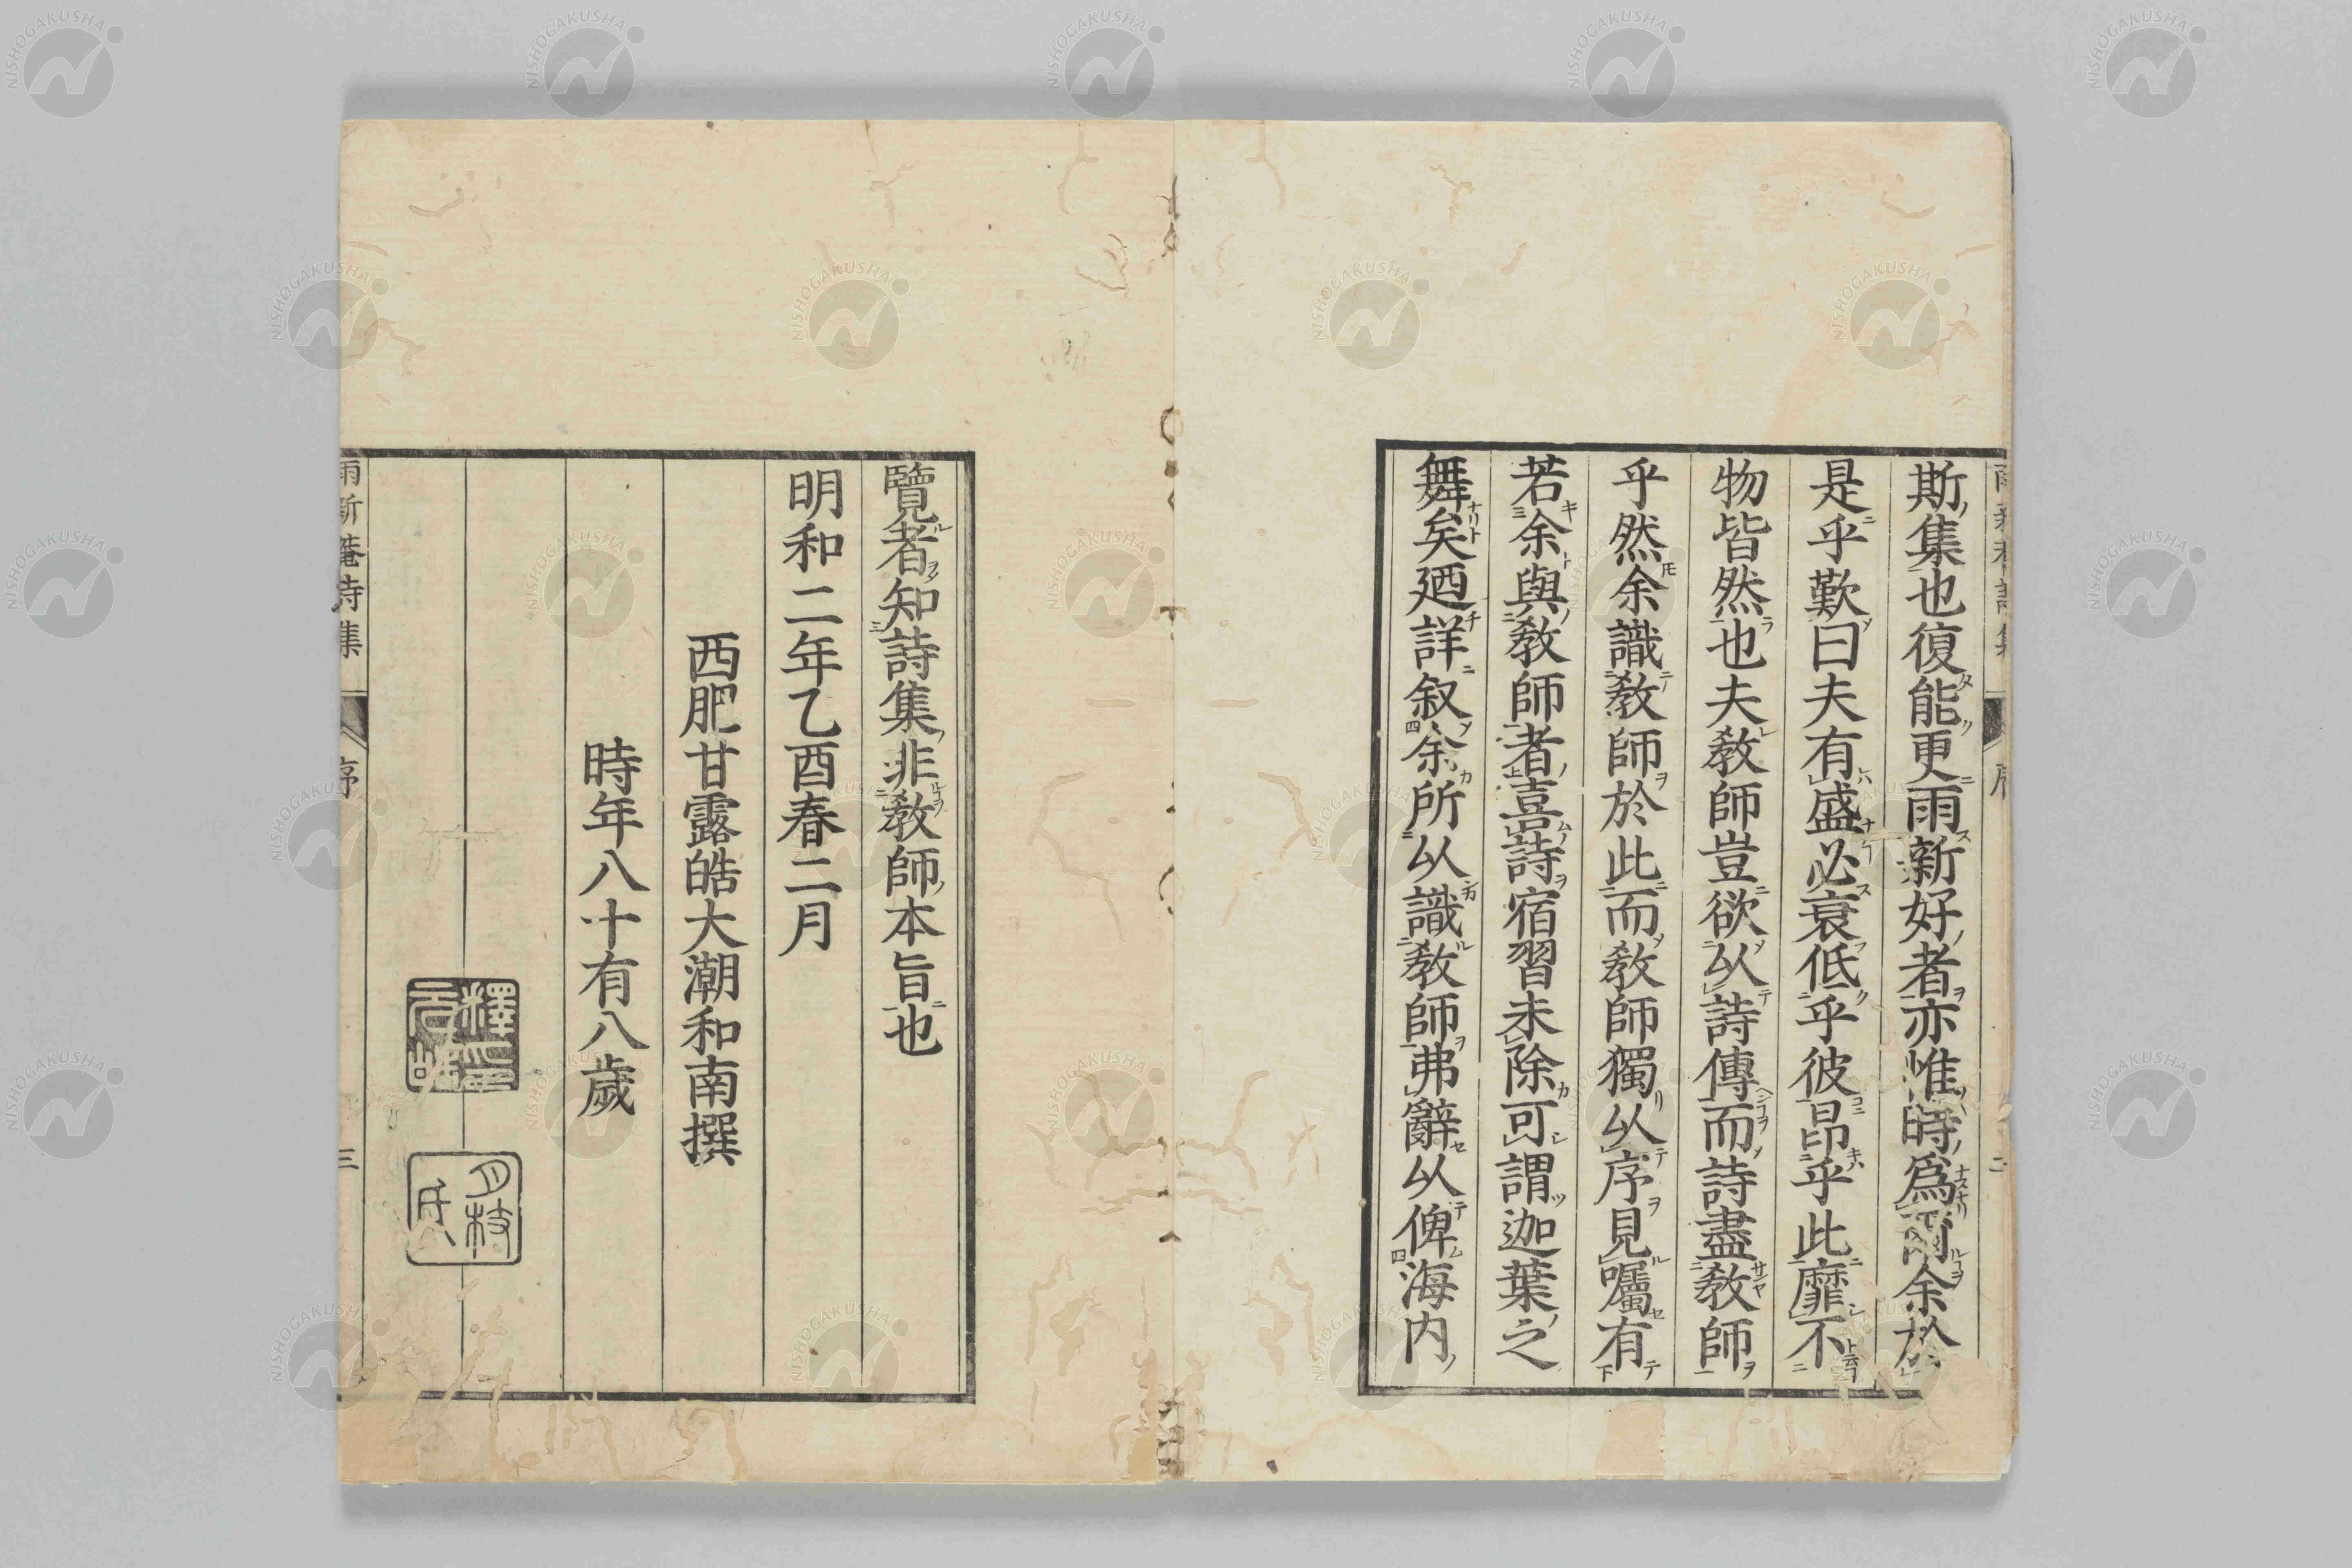 斯集也復能更雨新好者亦惟時爲爾余於
是乎歎曰夫有盛必衰低乎彼昂乎此靡不
物皆然也夫教師豈欲以詩傳而詩盡教師
乎然余識教師於此而教師獨以序見囑有
若余與教師者喜詩宿習未除可謂迦葉之
舞矣廼詳叙余所以識教師弗辭以俾海内
覽者知詩集非教師本旨也
明和二年乙酉春二月
西肥甘露皓大潮和南撰
時年八十有八歲
月枝氏
雨新菴詩集 序 三
NISHOGAKUSHA